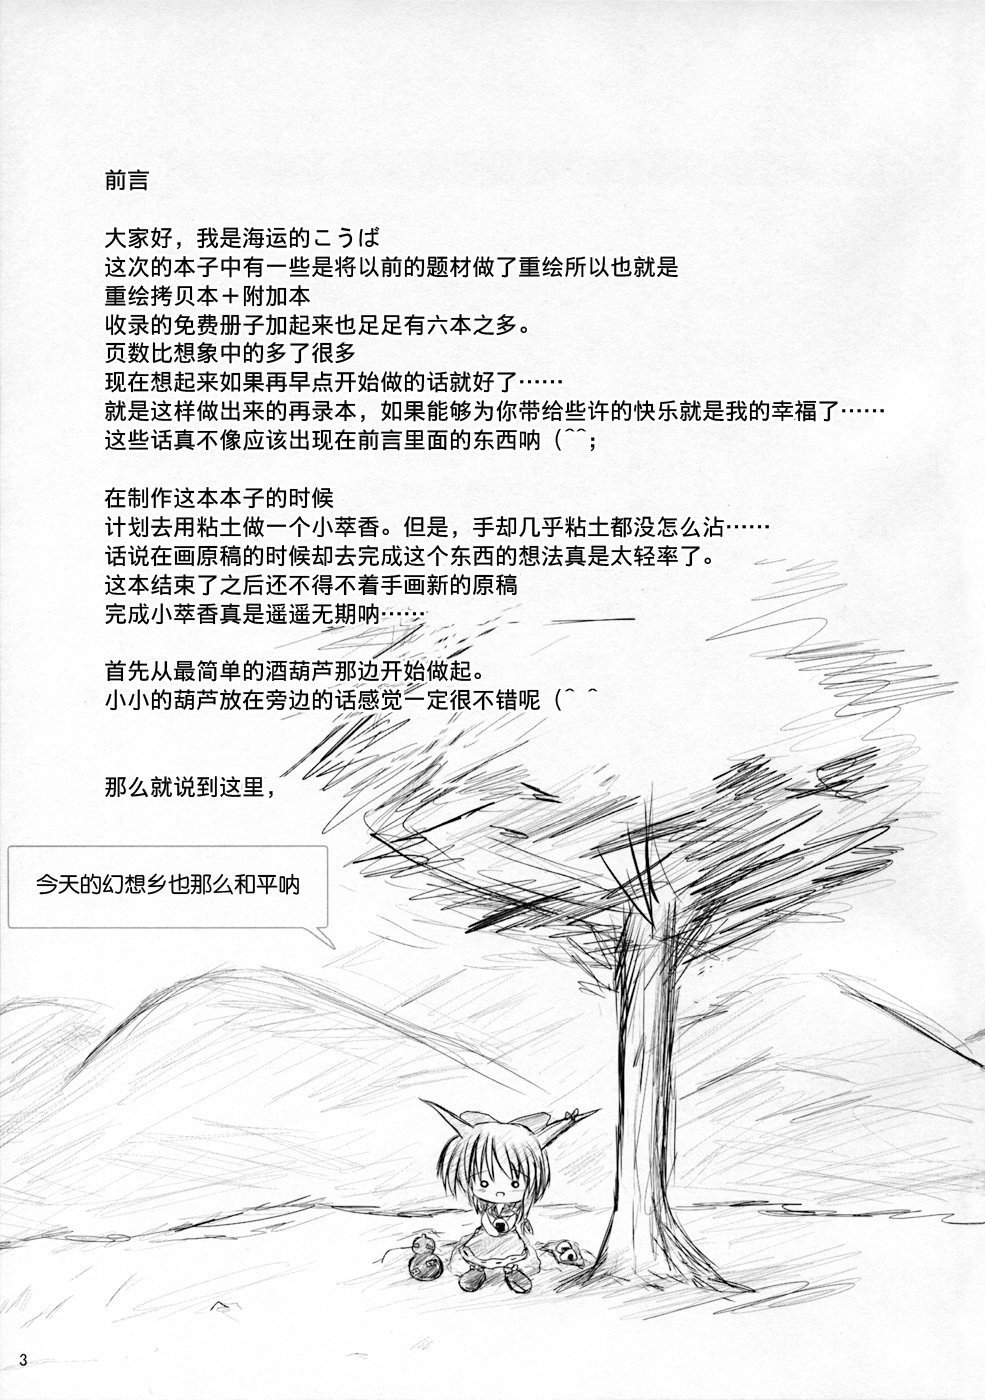 前言
大家好，我是海运的こうば
这次的本子中有一些是将以前的题材做了重绘所以也就是
重绘拷贝本＋附加本
收录的免费册子加起来也足足有六本之多。
页数比想象中的多了很多
现在想起来如果再早点开始做的话就好了……
就是这样做出来的再录本，如果能够为你带给些许的快乐就是我的幸福了……
这些话真不像应该出现在前言里面的东西呐（^^；
在制作这本本子的时候
计划去用粘土做一个小萃香。但是，手却几乎粘土都没怎么沾……
话说在画原稿的时候却去完成这个东西的想法真是太轻率了。
这本结束了之后还不得不着手画新的原稿
完成小萃香真是遥遥无期呐……
首先从最简单的酒葫芦那边开始做起。
小小的葫芦放在旁边的话感觉一定很不错呢（^ ^
那么就说到这里，
今天的幻想乡也那么和平呐
3